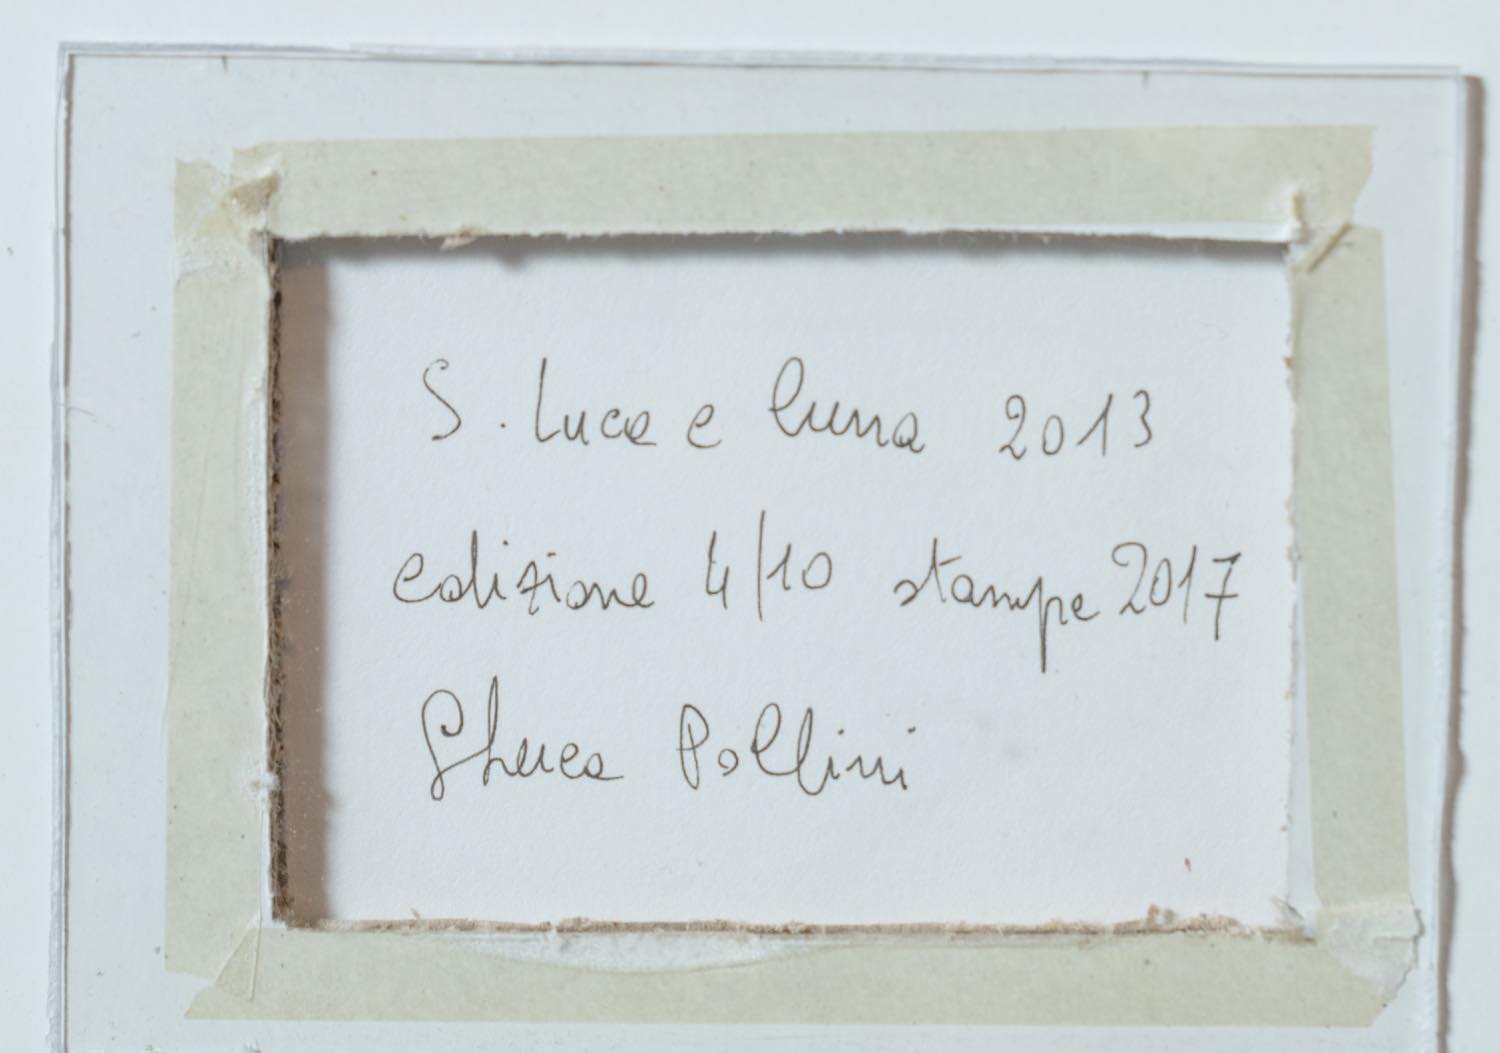 S. Luca e luna 2013
edizione 4/10 stampe 2017
Ghuca Pollini